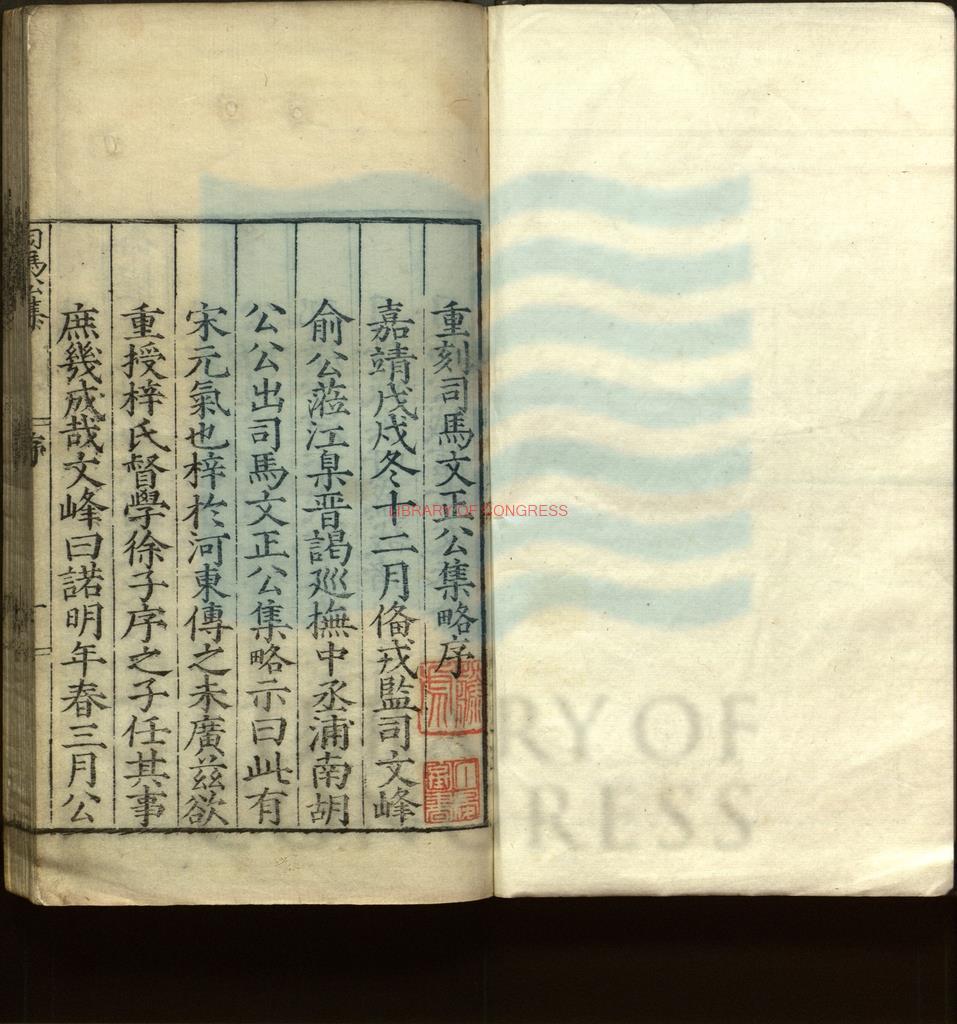 重刻司馬文正公集略序
嘉靖戊戌冬十二月備戎監司文峰
俞公蒞江臯晋謁廵撫中丞浦南胡
公公出司馬文正公集略示曰此有
宋元氣也梓於河東傳之未廣兹欲
重授梓氏督學徐子序之子任其事
庶幾成哉文峰曰諾明年春三月公
司馬公集
序
一
LIBRARY OF CONGRESS
RY OF
RESS